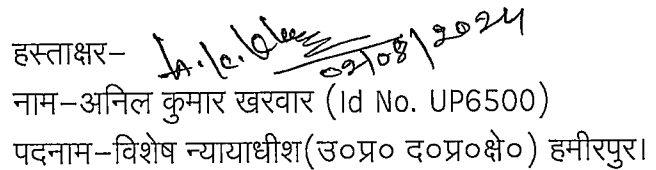 हस्ताक्षर- 02/08/2024
नाम-अनिल कुमार खरवार (Id No. UP6500)
पदनाम-विशेष न्यायाधीश(उ०प्र० द०प्र०क्षे०) हमीरपुर।